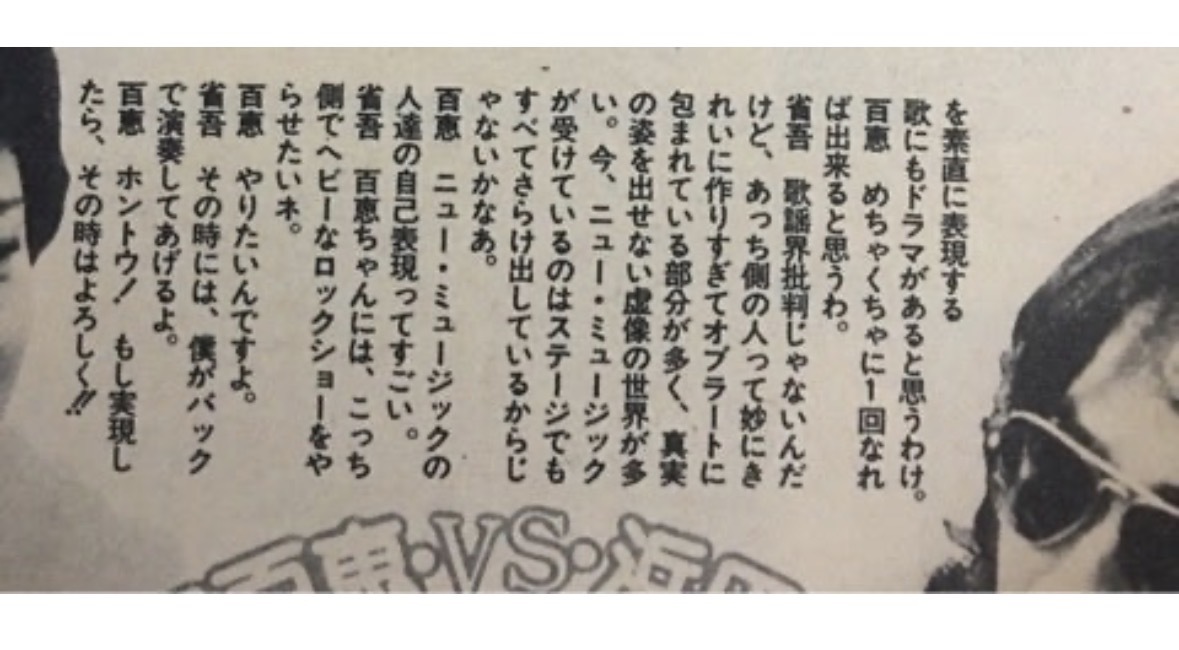 を素直に表現する
歌にもドラマがあると思うわけ。
百恵　めちゃくちゃに1回なれ
ば出来ると思うわ。
省吾　歌謡界批判じゃないんだ
けど、あっち側の人って妙にき
れいに作りすぎてオブラートに
包まれている部分が多く、真実
の姿を出せない虚像の世界が多
い。今、ニュー・ミュージック
が受けているのはステージでも
すべてさらけ出しているからじ
ゃないかなあ。
百恵　ニュー・ミュージックの
人達の自己表現ってすごい。
省吾　百恵ちゃんには、こっち
側でヘビーなロックショーをや
らせたいネ。
百恵　やりたいんですよ。
省吾　その時には、僕がバック
で演奏してあげるよ。
百恵　ホントウ！　もし実現し
たら、その時はよろしく!!
百恵・VS・浜田